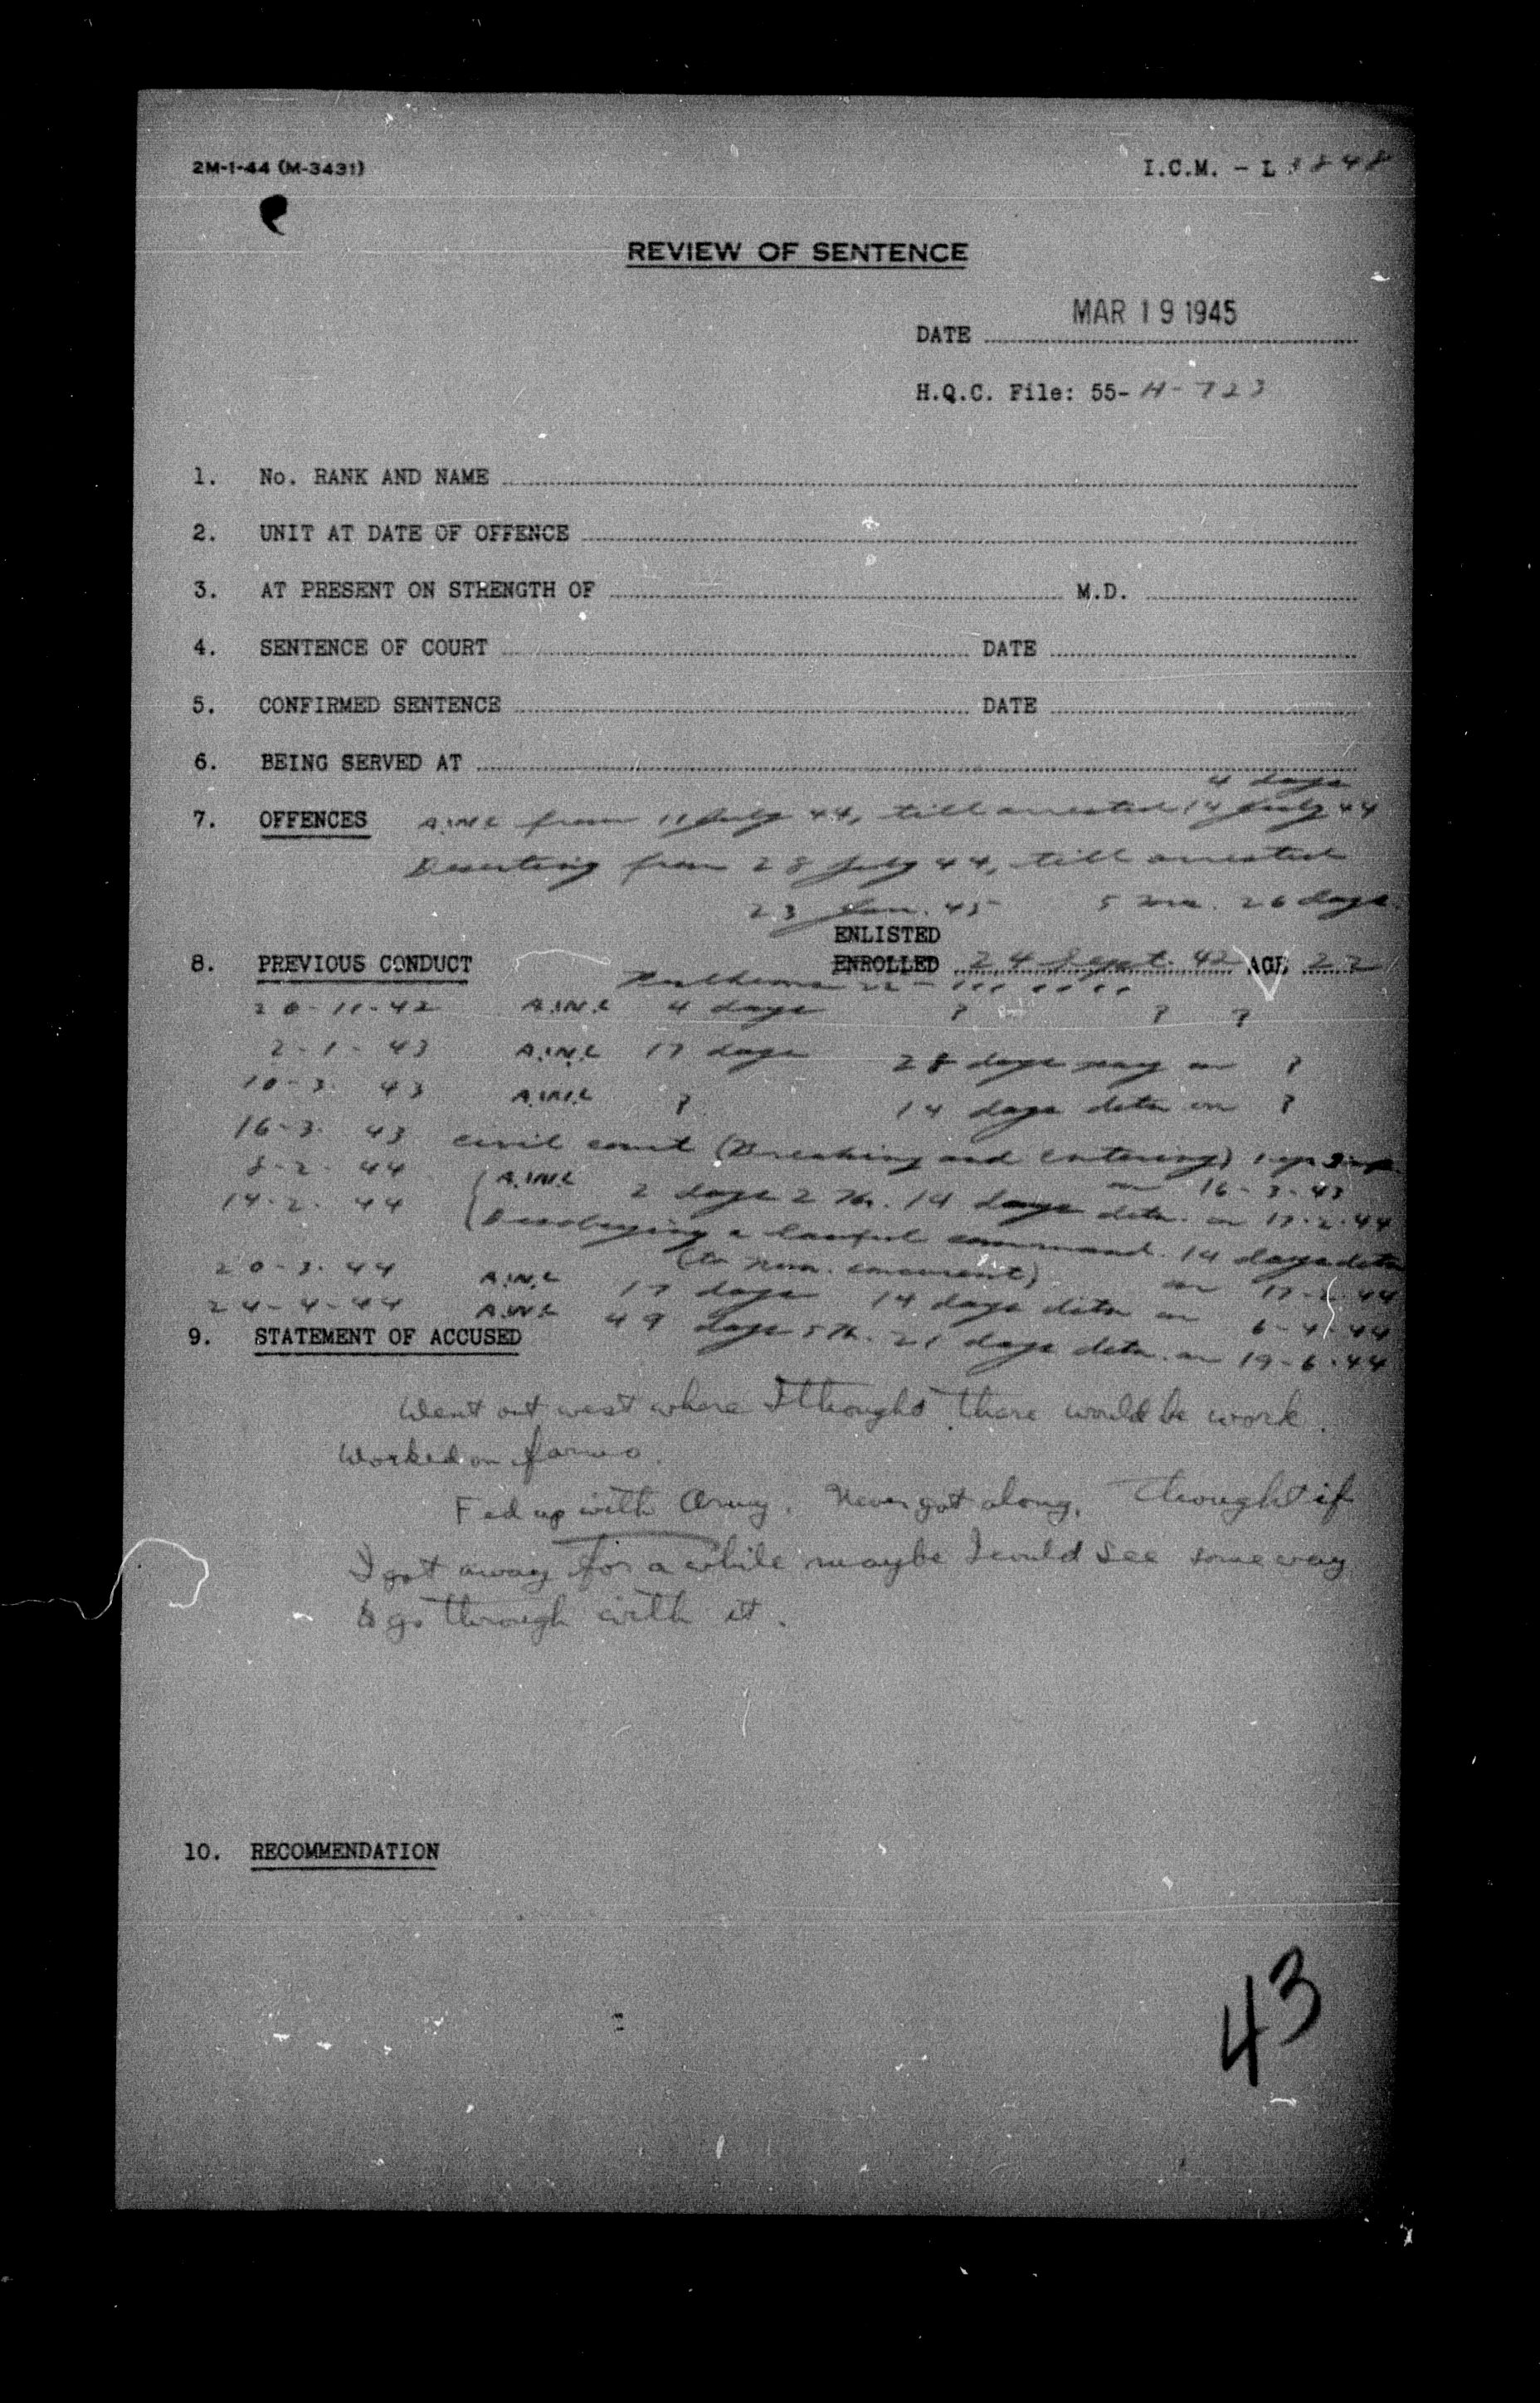 2M-1-44 (M-3431)
I.C.M. - L 3848
REVIEW OF SENTENCE
DATE MAR 19 1945
H.Q.C. File: 55- H-723
1. No. RANK AND NAME
2. UNIT AT DATE OF OFFENCE
3. AT PRESENT ON STRENGTH OF M.D.
4. SENTENCE OF COURT DATE
5. CONFIRMED SENTENCE DATE
6. BEING SERVED AT
4 days
7. OFFENCES A.W.L from 11 July 44, till arrested 14 July 44
Deserting from 28 July 44, till arrested
23 Jan. 45 5 mos. 26 days.
ENLISTED
8. PREVIOUS CONDUCT ENROLLED 24 Sept. 42 AGE 22
20-11-42 A.W.L 4 days ? ? ?
2-1-43 A.W.L 17 days 28 days pay on ?
10-3-43 A.W.L ? 14 days detn on ?
16-3-43 civil court (Breaking and entering) 1 yr
on 16-3-43
8-2-44 A.W.L 2 days 2 hr. 14 days detn. on 17-2-44
14-2-44 Disobeying a lawful command. 14 days detn
(to run concurrent) on 17-2-44
20-3-44 A.W.L 17 days 14 days detn on 6-4-44
24-4-44 A.W.L 49 days 5 hr. 21 days detn. on 19-6-44
9. STATEMENT OF ACCUSED
Went out west where I thought there would be work.
Worked on farms.
Fed up with Army. Never got along. Thought if
I got away for a while maybe I could see some way
to go through with it.
10. RECOMMENDATION
43